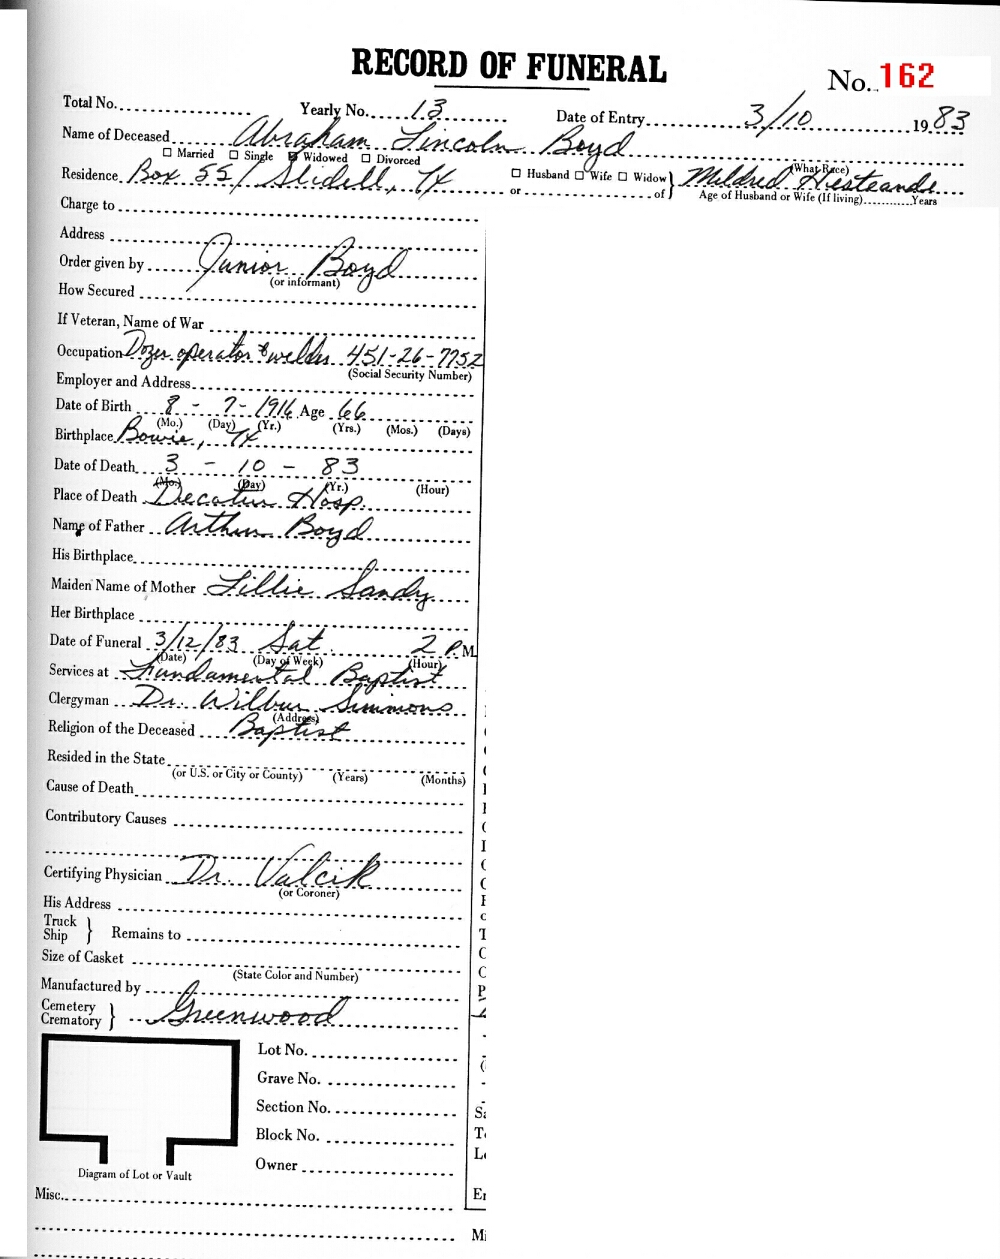 RECORD OF FUNERAL
No. 162
Total No. Yearly No. 13 Date of Entry 3/10 1983
Name of Deceased Abraham Lincoln Boyd
☐ Married ☐ Single ☒ Widowed ☐ Divorced (What Race)
Residence Box 55/ Slidell, TX ☐ Husband ☐ Wife ☐ Widow } Mildred
or of Age of Husband or Wife (If living) Years
Charge to
Address
Order given by Junior Boyd
(or informant)
How Secured
If Veteran, Name of War
Occupation Dozer operator & welder 451-26-7752
(Social Security Number)
Employer and Address
Date of Birth 8 - 7 - 1916 Age 66
(Mo.) (Day) (Yr.) (Yrs.) (Mos.) (Days)
Birthplace Bowie, TX
Date of Death 3 - 10 - 83
(Mo.) (Day) (Yr.) (Hour)
Place of Death Decatur Hosp.
Name of Father Arthur Boyd
His Birthplace
Maiden Name of Mother Lillie Sandy
Her Birthplace
Date of Funeral 3/12/83 Sat. 2 P.M.
(Date) (Day of Week) (Hour)
Services at Fundamental Baptist
Clergyman Dr. Wilbur Simmons
(Address)
Religion of the Deceased Baptist
Resided in the State
(or U.S. or City or County) (Years) (Months)
Cause of Death
Contributory Causes
Certifying Physician Dr. Valcik
(or Coroner)
His Address
Truck
Ship } Remains to
Size of Casket
(State Color and Number)
Manufactured by
Cemetery
Crematory } Greenwood
Lot No.
Grave No.
Section No.
Block No.
Owner
Diagram of Lot or Vault
Misc.